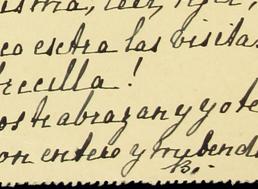 isma, leer,
co extra las visitas
recilla!
os trabrazan y yo te
on entero y mi bendi
B.